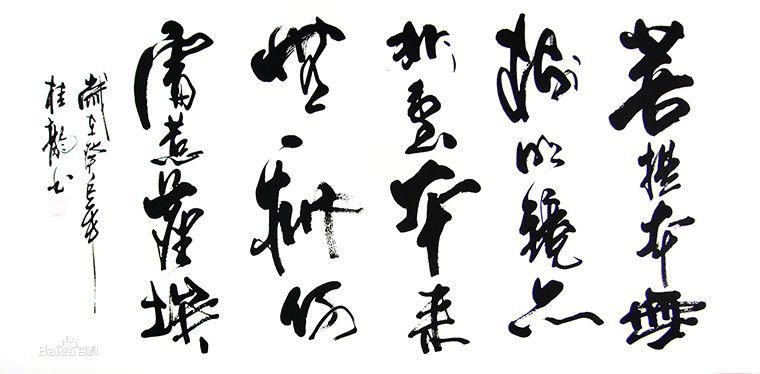 菩提本無
樹明鏡亦
非臺本來
無一物何
處惹塵埃
歲在癸巳年
桂龍书
Baidu百科